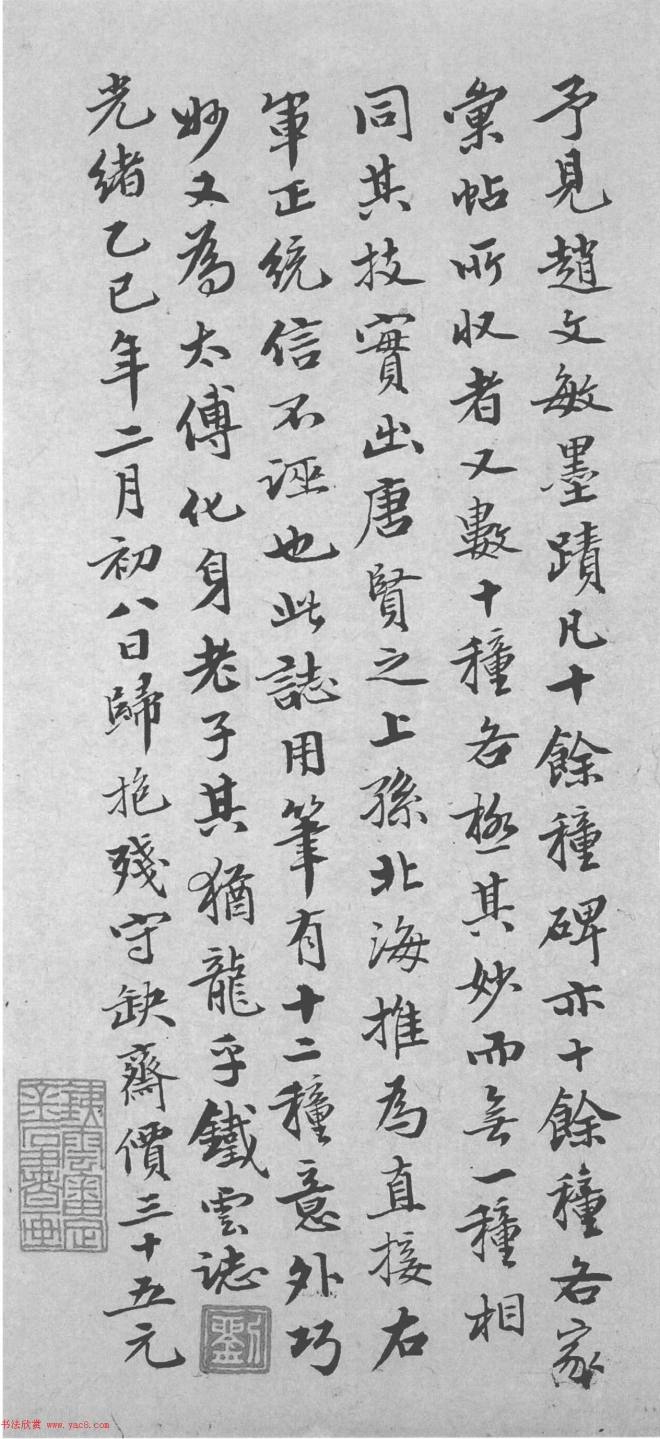 予見趙文敏墨蹟凡十餘種碑亦十餘種各家
彙帖所収者又數十種各極其妙而無一種相
同其技實出唐賢之上孫北海推為直接右
軍正統信不誣也此誌用筆有十二種意外巧
妙又為太傅化身老子其猶龍乎鐵雲誌
劉
光緒乙巳年二月初八日歸抱殘守缺齋價三十五元
书法欣赏 www.yac8.com